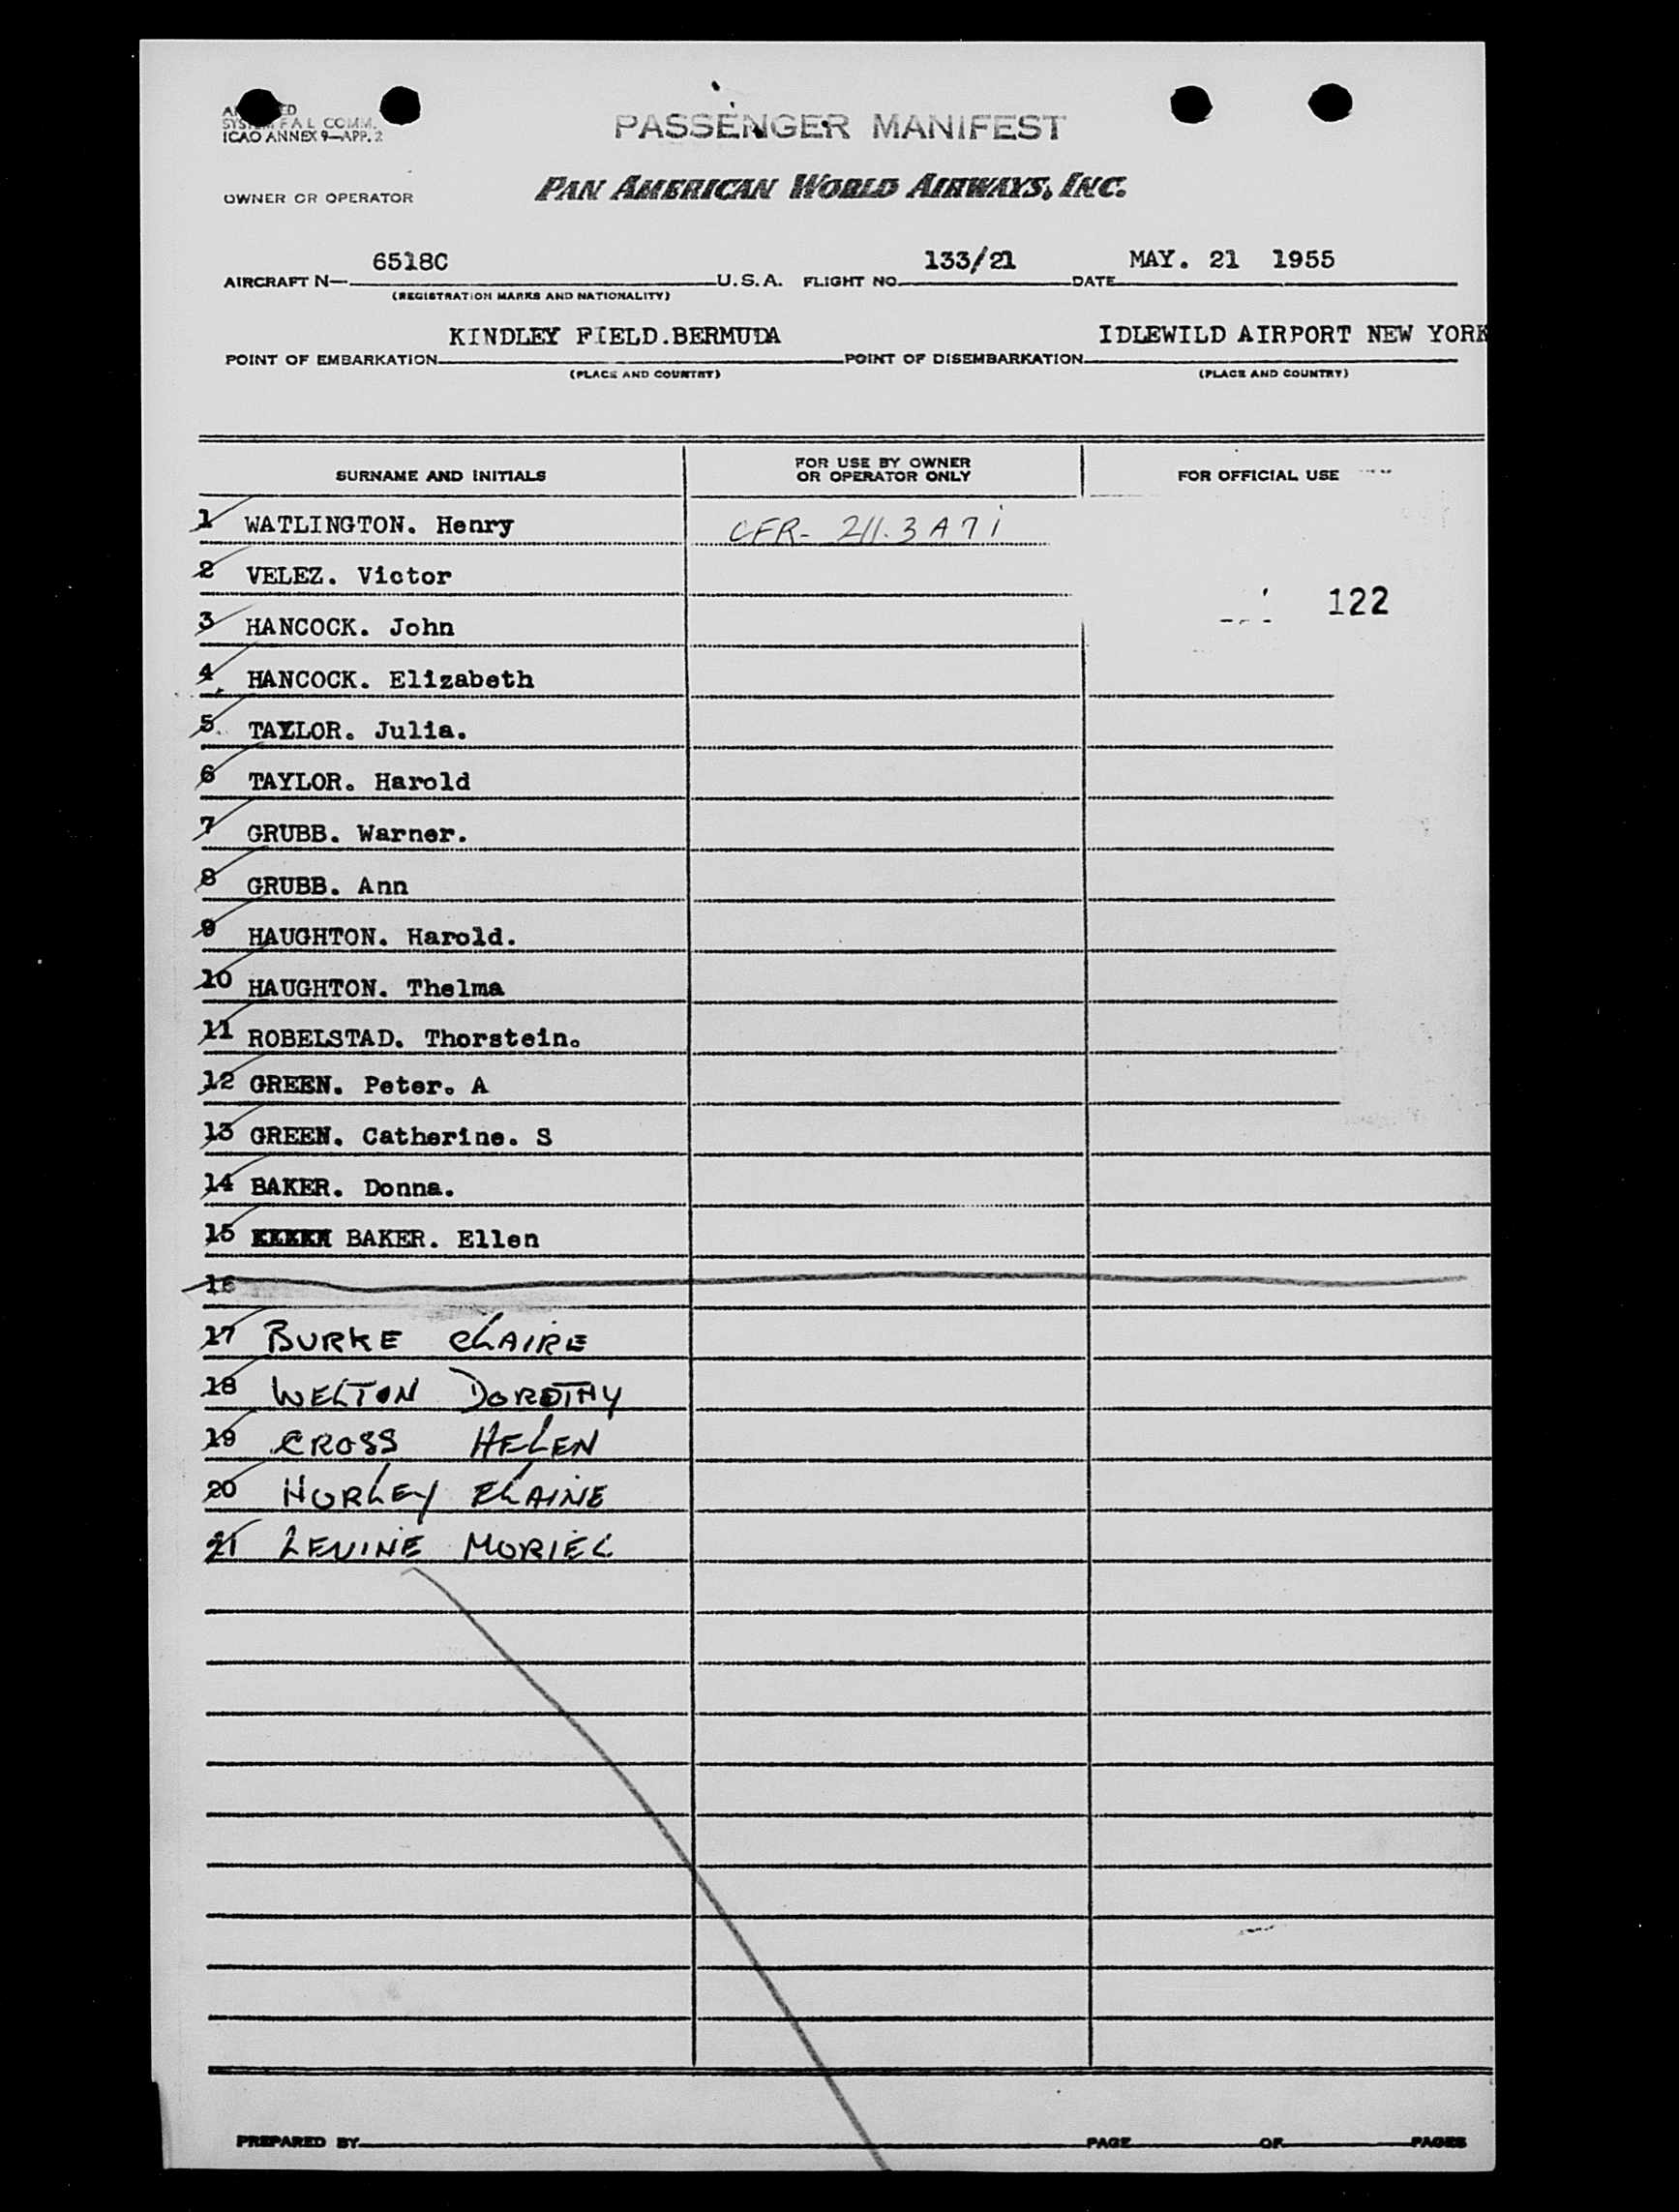 SYSTEM F.A.L. COMM.
ICAO ANNEX 9—APP. 2
PASSENGER MANIFEST
OWNER OR OPERATOR PAN AMERICAN WORLD AIRWAYS, INC.
6518C 133/21 MAY. 21 1955
AIRCRAFT N— U.S.A. FLIGHT NO. DATE
(REGISTRATION MARKS AND NATIONALITY)
KINDLEY FIELD.BERMUDA IDLEWILD AIRPORT NEW YORK
POINT OF EMBARKATION POINT OF DISEMBARKATION
(PLACE AND COUNTRY) (PLACE AND COUNTRY)
SURNAME AND INITIALS FOR USE BY OWNER OR OPERATOR ONLY FOR OFFICIAL USE
1 WATLINGTON. Henry CFR- 211.3 A 7 i
2 VELEZ. Victor
122
3 HANCOCK. John
4 HANCOCK. Elizabeth
5. TAYLOR. Julia.
6 TAYLOR. Harold
7 GRUBB. Warner.
8 GRUBB. Ann
9 HAUGHTON. Harold.
10 HAUGHTON. Thelma
11 ROBELSTAD. Thorstein.
12 GREEN. Peter. A
13 GREEN. Catherine. S
14 BAKER. Donna.
15 BAKER. Ellen
16
17 BURKE CLAIRE
18 WELTON DOROTHY
19 CROSS HELEN
20 HURLEY ELAINE
21 LEVINE MURIEL
PREPARED BY PAGE OF PAGES